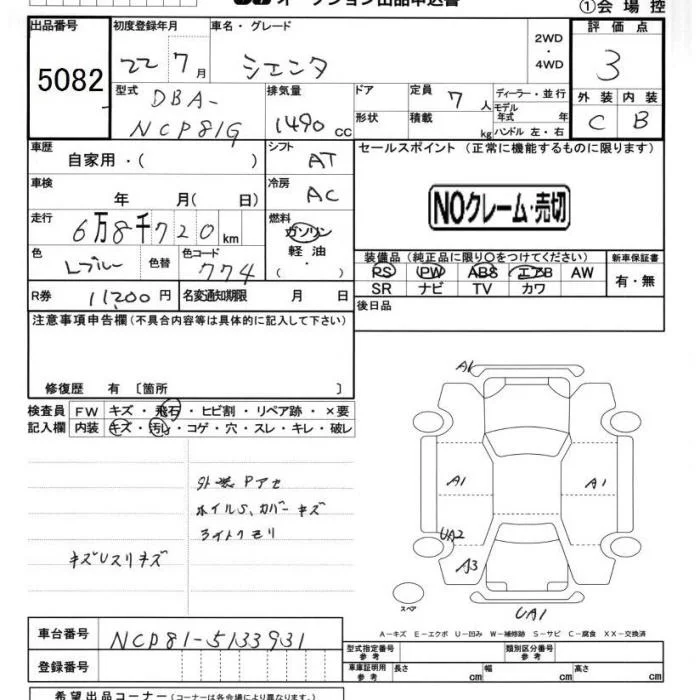 オークション出品申込書
①会場控
出品番号 5082
初度登録年月 22 7月
車名・グレード シエンタ
2WD・4WD
評価点 3
外装 C 内装 B
型式 DBA-NCP81G
排気量 1490 cc
ドア形状
定員 7人
積載 kg
ディーラー・並行
モデル年式 年
ハンドル 左・右
車歴 自家用・( )
シフト AT
セールスポイント (正常に機能するものに限ります)
NOクレーム・売切
車検 年 月( 日)
冷房 AC
走行 6万8千720km
燃料 ガソリン 軽油 ( ・ )
色 Lブルー
色替
色コード 774
装備品 (純正品に限り○をつけてください)
新車保証書 有・無
PS PW ABS エアB AW
SR ナビ TV カワ
R券 11200円
名変通知期限 月 日
後日品
注意事項申告欄 (不具合内容等は具体的に記入して下さい)
修復歴 有 〔箇所 〕
検査員記入欄
FW キズ・飛石・ヒビ割・リペア跡・×要
内装 キズ・汚れ・コゲ・穴・スレ・キレ・破レ
外装Pアセ
ホイルS、カバーキズ
ライトクモリ
キズUスリキズ
A1
A1
A1
UA2
A3
UA1
スペア
A-キズ E-エクボ U-凹み W-補修跡 S-サビ C-腐食 XX-交換済
車台番号 NCP81-5133931
登録番号
型式指定番号 参考
類別区分番号 参考
車庫証明用 参考 長さ cm 幅 cm 高さ cm
希望出品コーナー (コーナーは各会場により異なります。)